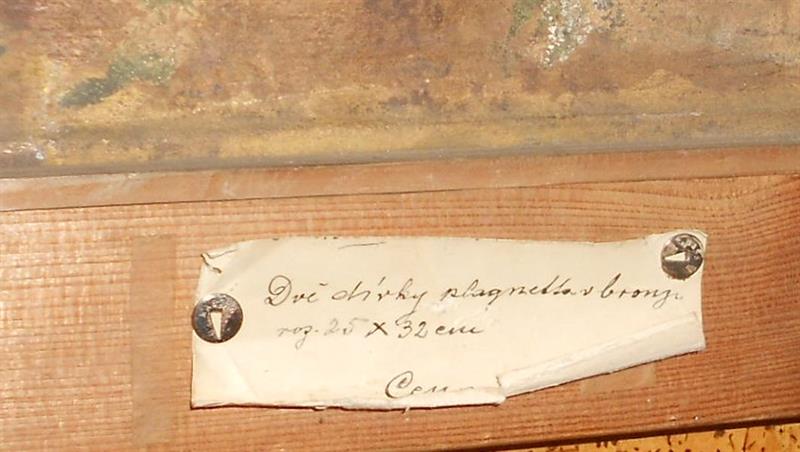 Dvě dívky plagnetta v bronz
roz. 25 X 32 cm
Cena